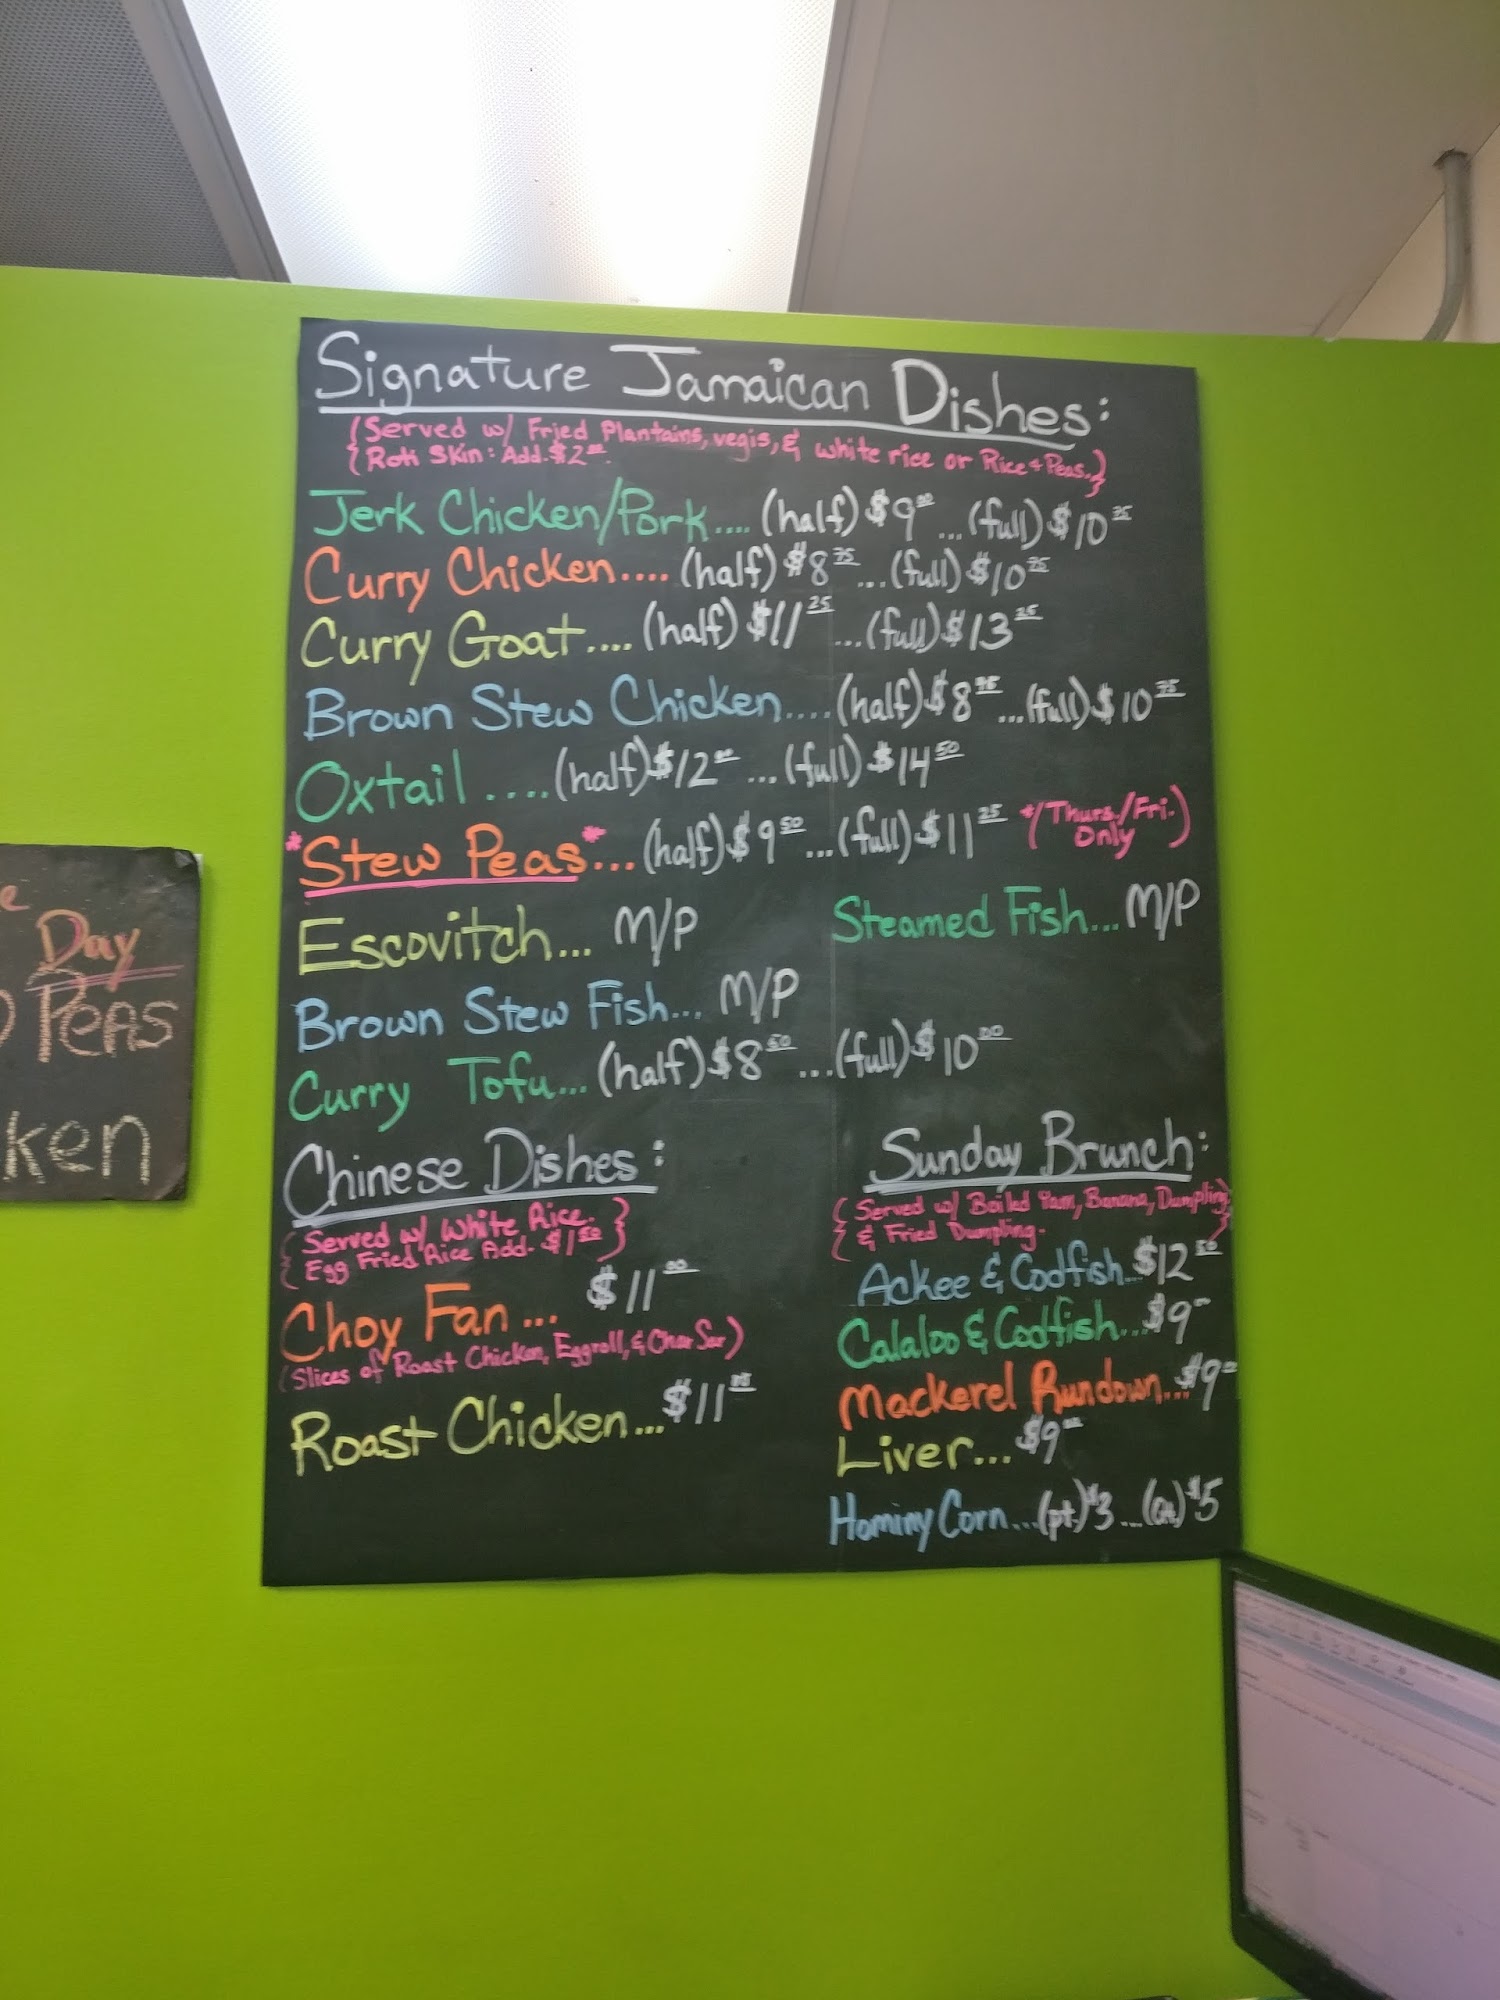 Signature Jamaican Dishes:
(Served w/ Fried Plantains, vegis, & white rice or Rice + Peas.)
Roti Skin: Add. $2.00
Jerk Chicken/Pork.... (half) $9.00 ...(full) $10.75
Curry Chicken.... (half) $8.75 ...(full) $10.75
Curry Goat.... (half) $11.25 ...(full) $13.25
Brown Stew Chicken.... (half) $8.75 ...(full) $10.75
Oxtail.... (half) $12.00 ...(full) $14.50
*Stew Peas*... (half) $9.50 ...(full) $11.25 *(Thurs./Fri. Only)
Escovitch... M/P
Steamed Fish... M/P
Brown Stew Fish... M/P
Curry Tofu... (half) $8.50 ...(full) $10.00
Chinese Dishes:
{Served w/ White Rice.
Egg Fried Rice Add. $1.50}
Choy Fan... $11.00
(Slices of Roast Chicken, Eggroll, & Char Sar)
Roast Chicken... $11
Sunday Brunch:
{Served w/ Boiled Yam, Banana, Dumpling,
& Fried Dumpling.}
Ackee & Codfish... $12.50
Calaloo & Codfish... $9
Mackerel Rundown... $9
Liver... $9.00
Hominy Corn... (pt.) $3 ... (Qt.) $5
e
Day
Peas
ken